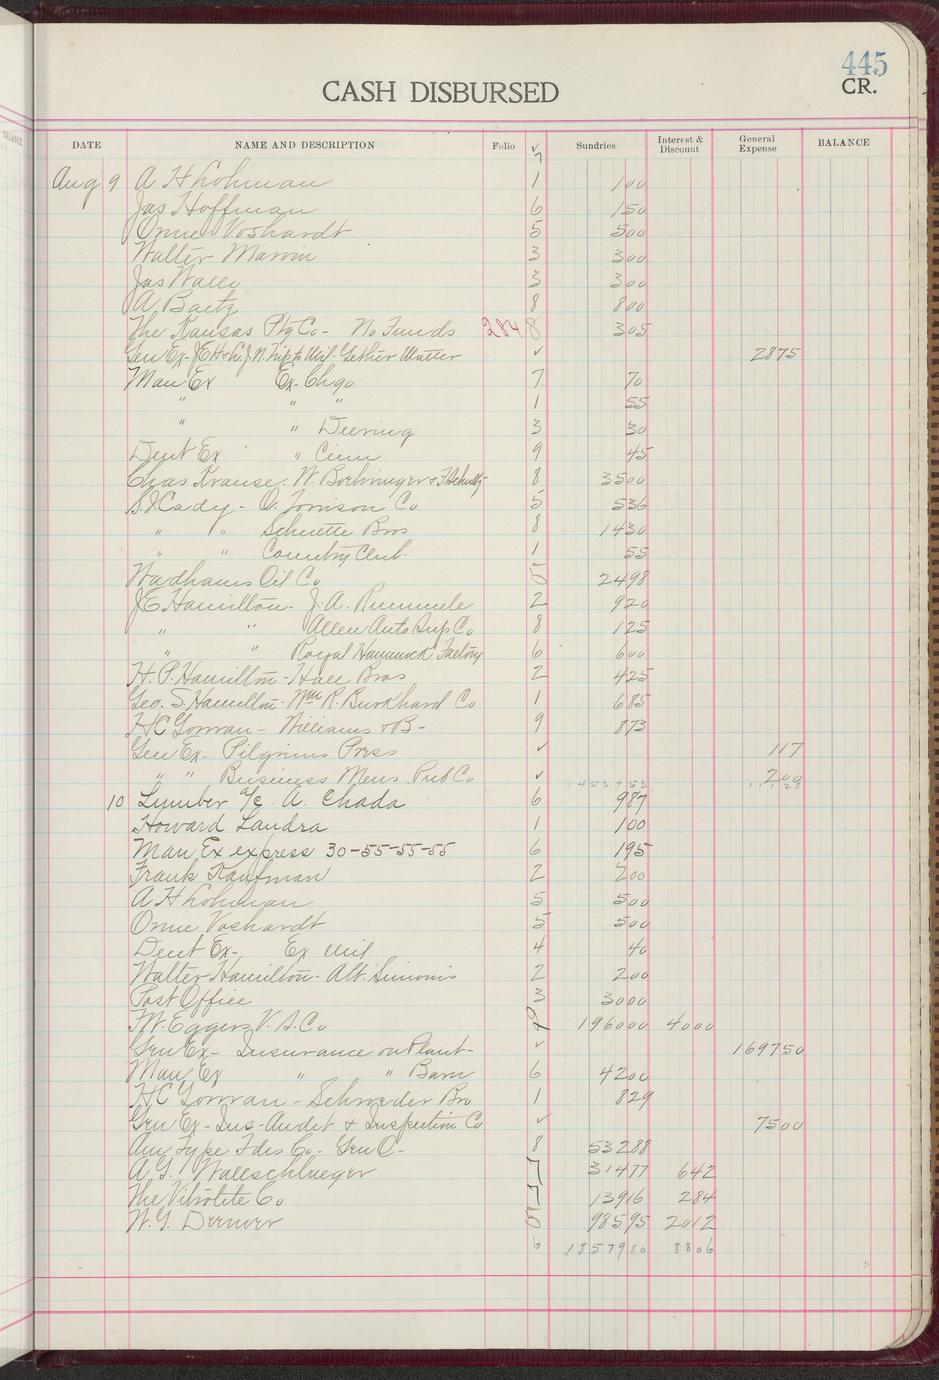 445
CASH DISBURSED CR.
DATE NAME AND DESCRIPTION Folio ✓ Sundries Interest & Discount General Expense BALANCE
7
Aug 9 A H Lohman 1 100
Jas Hoffman 6 150
Orme Voshardt 5 500
Walter Marvin 3 300
Jas Wally 3 300
A. Baetz 8 800
The Kansas Ptg Co- No Funds 284 8 305
Gen Ex- JEH & H.J.N. Trip to Mil- Gether Matter ✓ 2875
Man Ex Ex- Chgo 7 70
" " " 1 55
" " Deering 3 30
Dent Ex " Cinn 9 45
Chas Krause. W. Boehringer & F. Schultz 8 3500
S.J. Cady- O. Torrison Co 5 536
" " Schuette Bros 8 1430
" " Country Club- 1 55
Wadhams Oil Co 5 2498
JE Hamilton- J.A. Rummele 2 920
" " Allen Auto Sup Co 8 125
" " Royal Hammock Factory 6 600
H.P. Hamilton- Hall Bros 2 425
Geo. S. Hamilton- Wm R. Burkhard Co 1 685
HC Gorman- Williams & B- 9 873
Gen Ex- Pilgrims Press ✓ 117
" " Business Mens Pub Co ✓ 200
10 Lumber a/c A. Chada 6 987
Howard Landra 1 100
Man Ex express 30-55-55-55 6 195
Frank Kaufman 2 200
A H Lohman 5 500
Orme Voshardt 5 500
Dent Ex- Ex Mil 4 40
Walter Hamilton- Alb. Simonis 2 200
Post Office 3 3000
F.W. Eggers V.S. Co 9 196000 4000
Gen Ex- Insurance on Plant- ✓ 169750
Man Ex " " Barn 6 4200
HC Gorman- Schroeder Bro 1 829
Gen Ex- Ins- Audit & Inspection Co ✓ 7500
Am Type Fdrs Co- Gen O- 8 53288
A.G. Wallschlaeger 7 31477 642
The Vitrolite Co 7 13916 284
W.G. Deerwer 5 98595 2012
6 1857980 8806